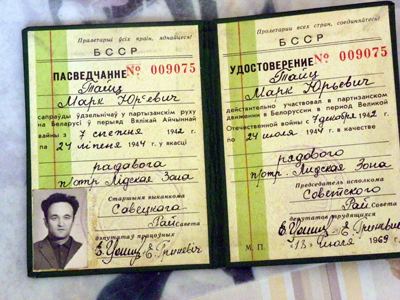 Пралетарыі ўсіх краін, яднайцеся!
БССР
ПАСВЕДЧАННЕ № 009075
Тайц
Марк Юр'евіч
сапраўды ўдзельнічаў у партызанскім руху
на Беларусі ў перыяд Вялікай Айчыннай
вайны з 7 снежня 1942 г.
па 24 ліпеня 1944 г. у якасці
радавога
п/отр. Лидская Зона
Старшыня выканкома
Савецкага
Райсавета
дэпутатаў працоўных
Пролетарии всех стран, соединяйтесь!
БССР
УДОСТОВЕРЕНИЕ № 009075
Тайц
Марк Юрьевич
действительно участвовал в партизанском
движении в Белоруссии в период Великой
Отечественной войны с 7 декабря 1942 г.
по 24 июля 1944 г. в качестве
рядового
п/отр. Лидская Зона
Председатель исполкома
Советского
Райсовета
депутатов трудящихся
М. П. "18" июля 1969 г.